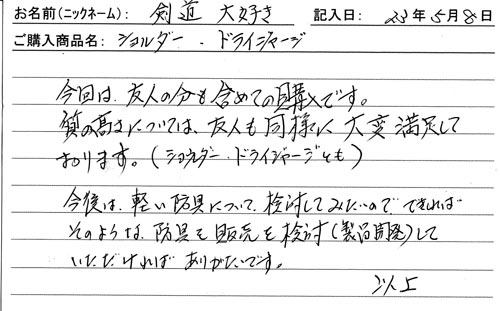 お名前(ニックネーム): 剣道 大好き 記入日: 23年5月8日
ご購入商品名: ショルダー、ドライジャージ
今回は、友人の分も含めての購入です。
質の高さについては、友人も同様に大変満足して
おります。(ショルダー、ドライジャージとも)
今後は、軽い防具について、検討してみたいので、できれば
そのような、防具も販売を検討(製品開発)して
いただければ ありがたいです。
以上